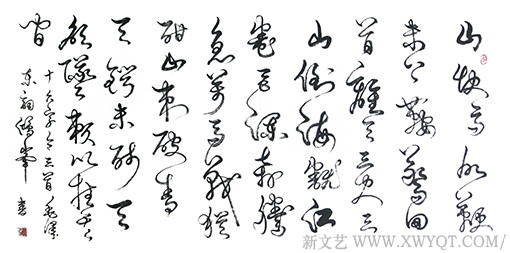 山快马加鞭
未下鞍惊回
首离天三尺三
山倒海翻江
卷巨澜奔腾
急万马战犹
酣山刺破青
天锷未残天
欲堕赖以拄其
间
十六字令三首毛泽
东词
书
新文艺 WWW.XWYQT.COM